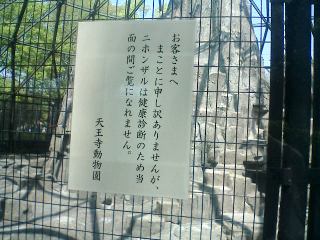 お客さまへ
まことに申し訳ありませんが、
ニホンザルは健康診断のため当
面の間ご覧になれません。
天王寺動物園